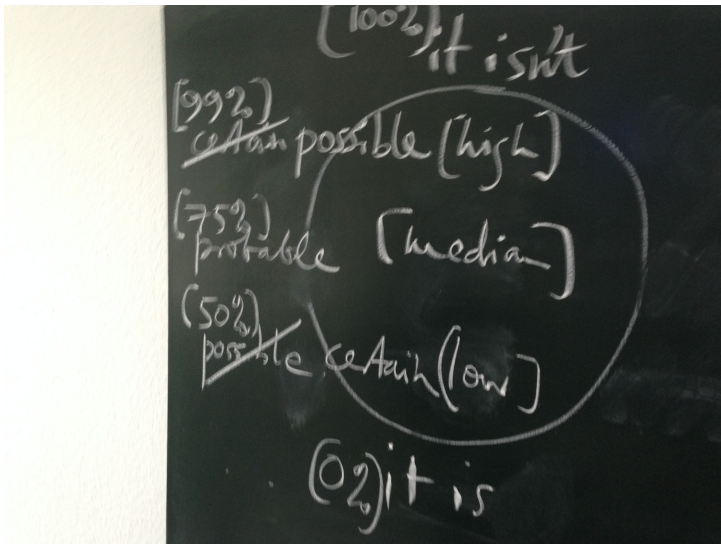 (100%) it isn't
(99%)
certain possible (high]
(75%)
probable [median]
(50%)
possible certain (low]
(0%) it is